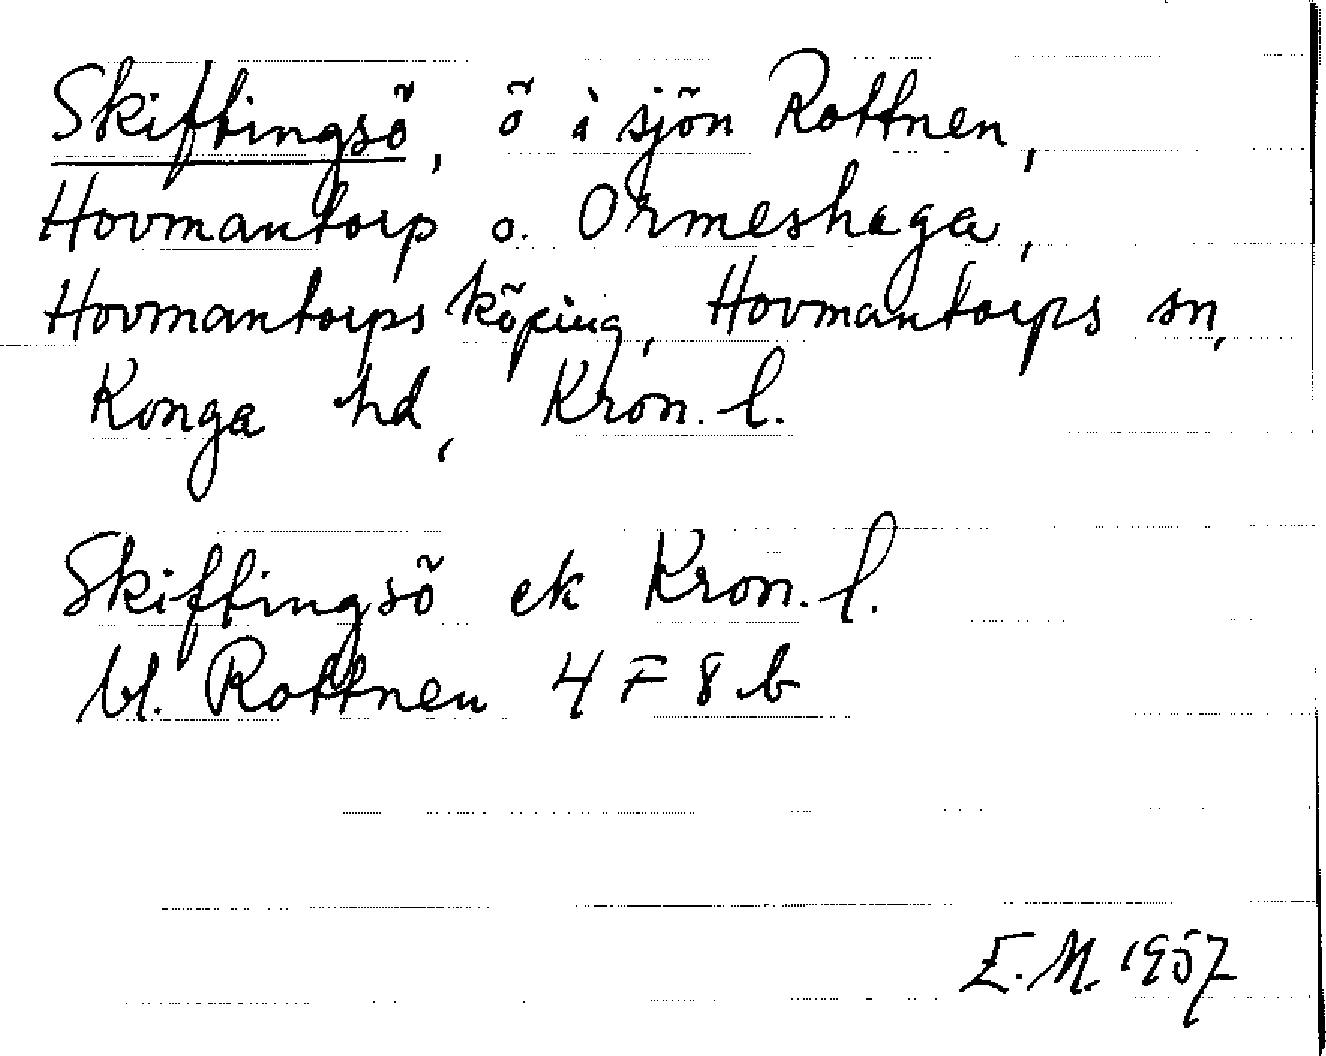 Skiftingsö, ö i sjön Rottnen,
Hovmantorp o. Ormeshaga,
Hovmantorps köping, Hovmantorps sn,
Konga hd, Kron. l.
Skiftingsö ek Kron. l.
bl. Rottnen 4 F 8 b
E.M. 1957